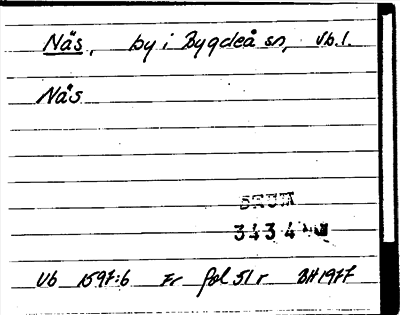 Näs, by i Bygdeå sn, Vb.l.
Näs
3434
Vb 1597:6 Fr fol 51 r BH 1977